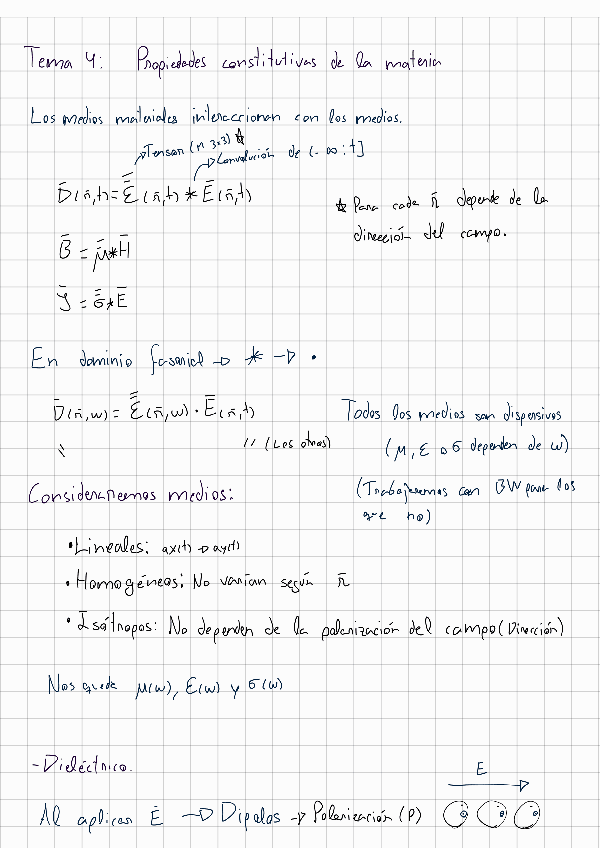 Tema 4: Propiedades constitutivas de la materia
Los medios materiales interaccionan con los medios.
→ Tensor (M 3x3) ☆
→ Convolución de (-∞:t]
D̄(r̄,t) = ε̿(r̄,t) * Ē(r̄,t)
☆ Para cada r̄ depende de la
dirección del campo.
B̄ = μ̿ * H̄
J̄ = σ̿ * Ē
En dominio fasorial → * → ·
D̄(r̄,w) = ε̿(r̄,w) · Ē(r̄,t)
Todos los medios son dispersivos
" (Los otros)
(μ, ε o σ dependen de w)
Consideraremos medios:
(Trabajaremos con BW para los
que no)
• Lineales: ax(t) → ay(t)
• Homogéneos: No varían según r̄
• Isótropos: No dependen de la polarización del campo (Dirección)
Nos queda μ(w), ε(w) y σ(w)
- Dieléctrico.
E
Al aplicar E → Dipolos → Polarización (P)